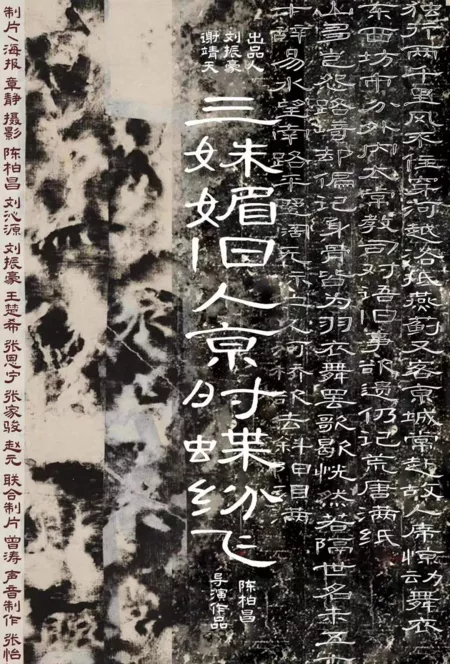 独行两千里风不住穿河越洛抵燕蓟又客京城常赴故人席惊动舞衣
东西坊市分外内太常教司对语旧事欲遗仍记荒唐满纸
山多岂愁路崎却偏记身骨皆为羽衣舞罢歌歇恍然若隔世名未五
十辞易水望南路平
出品人
刘振豪
谢靖天
三姝媚旧人京时蝶纷飞
陈柏昌
导演作品
制片/海报 章静 摄影 陈柏昌 刘沁源 刘振豪 王楚希 张恩宁 张家骏 赵元 联合制片 曾涛 声音制作 张怡